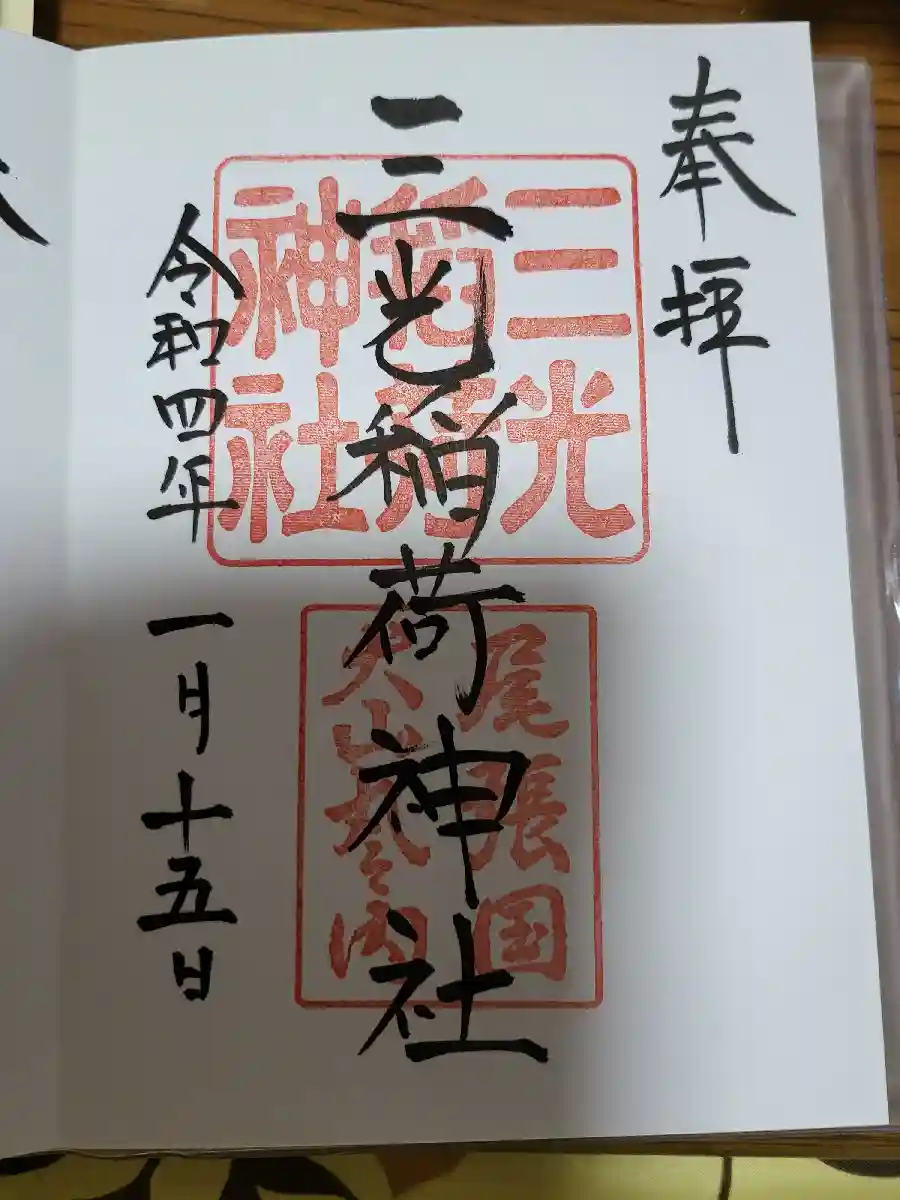 奉拝
三光稲荷神社
令和四年 一月十五日
三光
稲荷
神社
尾張国
犬山城内